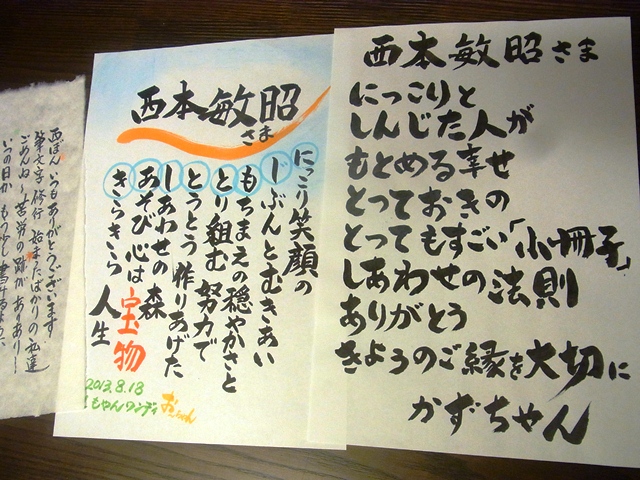 西本敏昭さま
にっこりと
しんじた人が
もとめる幸せ
とっておきの
とってもすごい「小冊子」
しあわせの法則
ありがとう
きょうのご縁を大切に
かずちゃん
西本敏昭
さま
にっこり笑顔の
じぶんとむきあい
もちまえの穏やかさと
とり組む努力で
とうとう作りあげた
しあわせの森
あそび心は宝物
きらきら人生
2013.8.18
もやんワンディ
西ぽん いつもありがとうございます
筆文字修行 始まったばかりの私達
ごめんね〜 苦労の跡がありあり〜
いつの日か もう少し